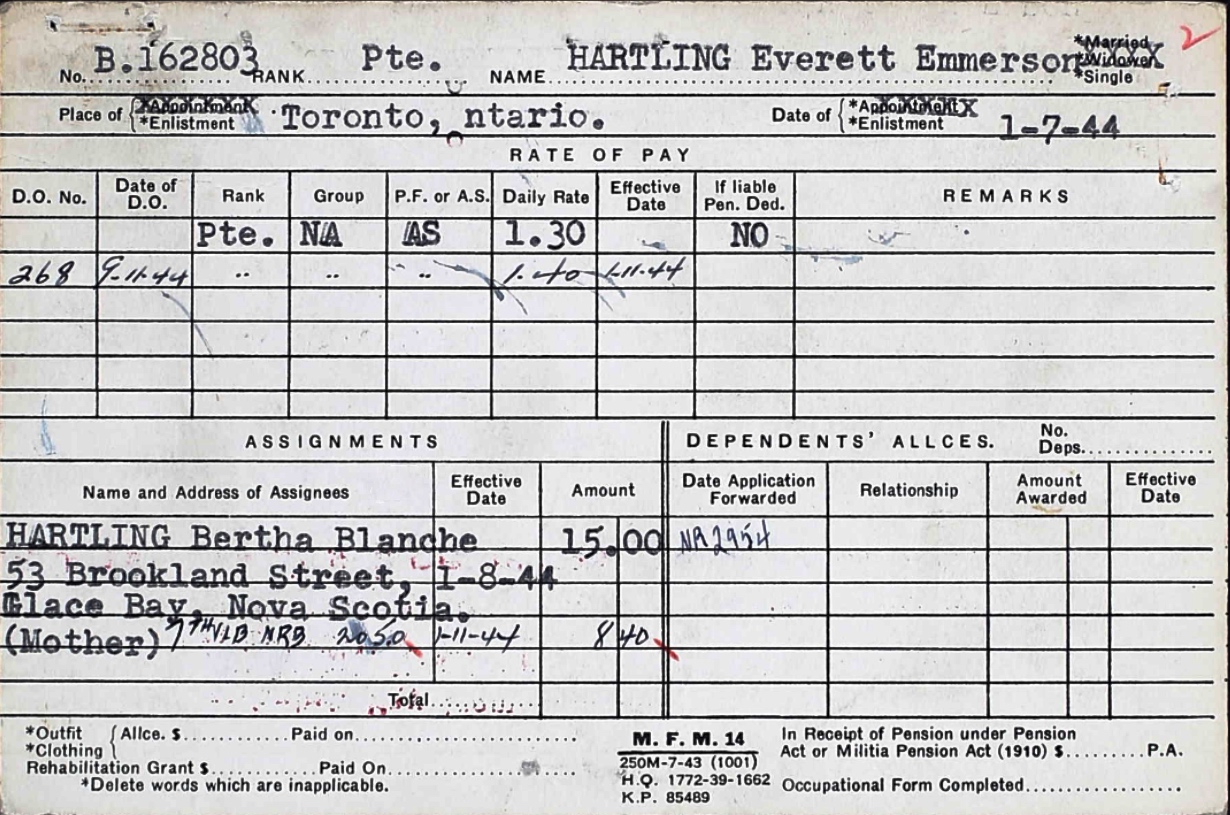 2
No. B.162803 RANK Pte. NAME HARTLING Everett Emmerson *Married *Widower *Single
Place of { *Appointment *Enlistment Toronto, ntario. Date of { *Appointment *Enlistment 1-7-44
RATE OF PAY
D.O. No. Date of D.O. Rank Group P.F. or A.S. Daily Rate Effective Date If liable Pen. Ded. REMARKS
Pte. NA AS 1.30 NO
268 9-11-44 " " " 1.40 1-11-44
ASSIGNMENTS DEPENDENTS' ALLCES. No. Deps.
Name and Address of Assignees Effective Date Amount Date Application Forwarded Relationship Amount Awarded Effective Date
HARTLING Bertha Blanche 15.00 NA 2954
53 Brookland Street, 1-8-44
Glace Bay, Nova Scotia.
(Mother) 7TH VLB NRB 2050 1-11-44 8 40
Total
*Outfit { Allce. $ Paid on
*Clothing
Rehabilitation Grant $ Paid On
*Delete words which are inapplicable.
M. F. M. 14
250M-7-43 (1001)
H.Q. 1772-39-1662
K.P. 85489
In Receipt of Pension under Pension
Act or Militia Pension Act (1910) $ P.A.
Occupational Form Completed